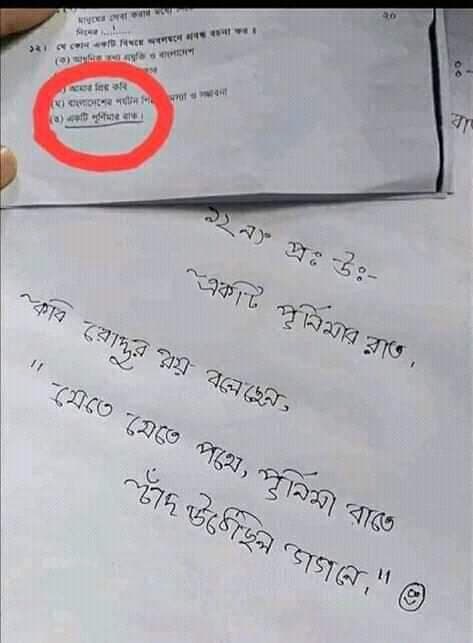 মানুষের সেবা করার মধ্যে
নিহিত।........
২০
১২। যে কোন একটি বিষয়ে অবলম্বনে প্রবন্ধ রচনা কর ঃ
(ক) আধুনিক তথ্য প্রযুক্তি ও বাংলাদেশ
) আমার প্রিয় কবি
(ঘ) বাংলাদেশের পর্যটন শি সমস্যা ও সম্ভাবনা
(ঙ) একটি পূর্ণিমার রাত।
১২ নং প্রঃ উঃ-
একটি পূর্নিমার রাত,
কবি রোদ্দুর রয় বলেছেন,
"যেতে যেতে পথে, পূর্নিমা রাতে
চাঁদ উঠেছিল গগনে,"